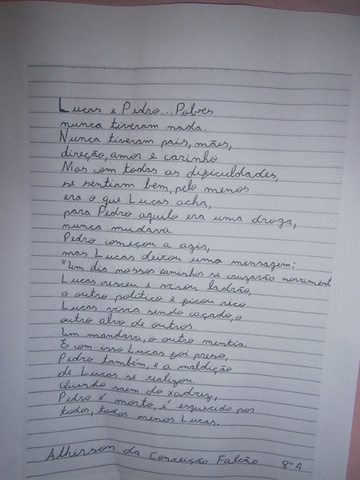 Lucas e Pedro... Pobres
nunca tiveram nada.
Nunca tiveram pais, mães,
direção, amor e carinho
Mas com todas as dificuldades,
se sentiam bem, pelo menos
era o que Lucas acha,
para Pedro aquilo era uma droga,
nunca mudava
Pedro começou a agir,
mas Lucas deixou uma mensagem:
"Um dia nossos caminhos se cruzarão novament
Lucas cresceu e virou ladrão,
o outro político e ficou rico.
Lucas vivia sendo caçado, o
outro alvo de outros.
Um mandava, o outro mentia.
E com isso Lucas foi preso,
Pedro também, e a maldição
de Lucas se realizou.
Quando saem do xadrez,
Pedro é morto, é esquecido por
todos, todos menos Lucas.
da Conceição Falcão 8º A